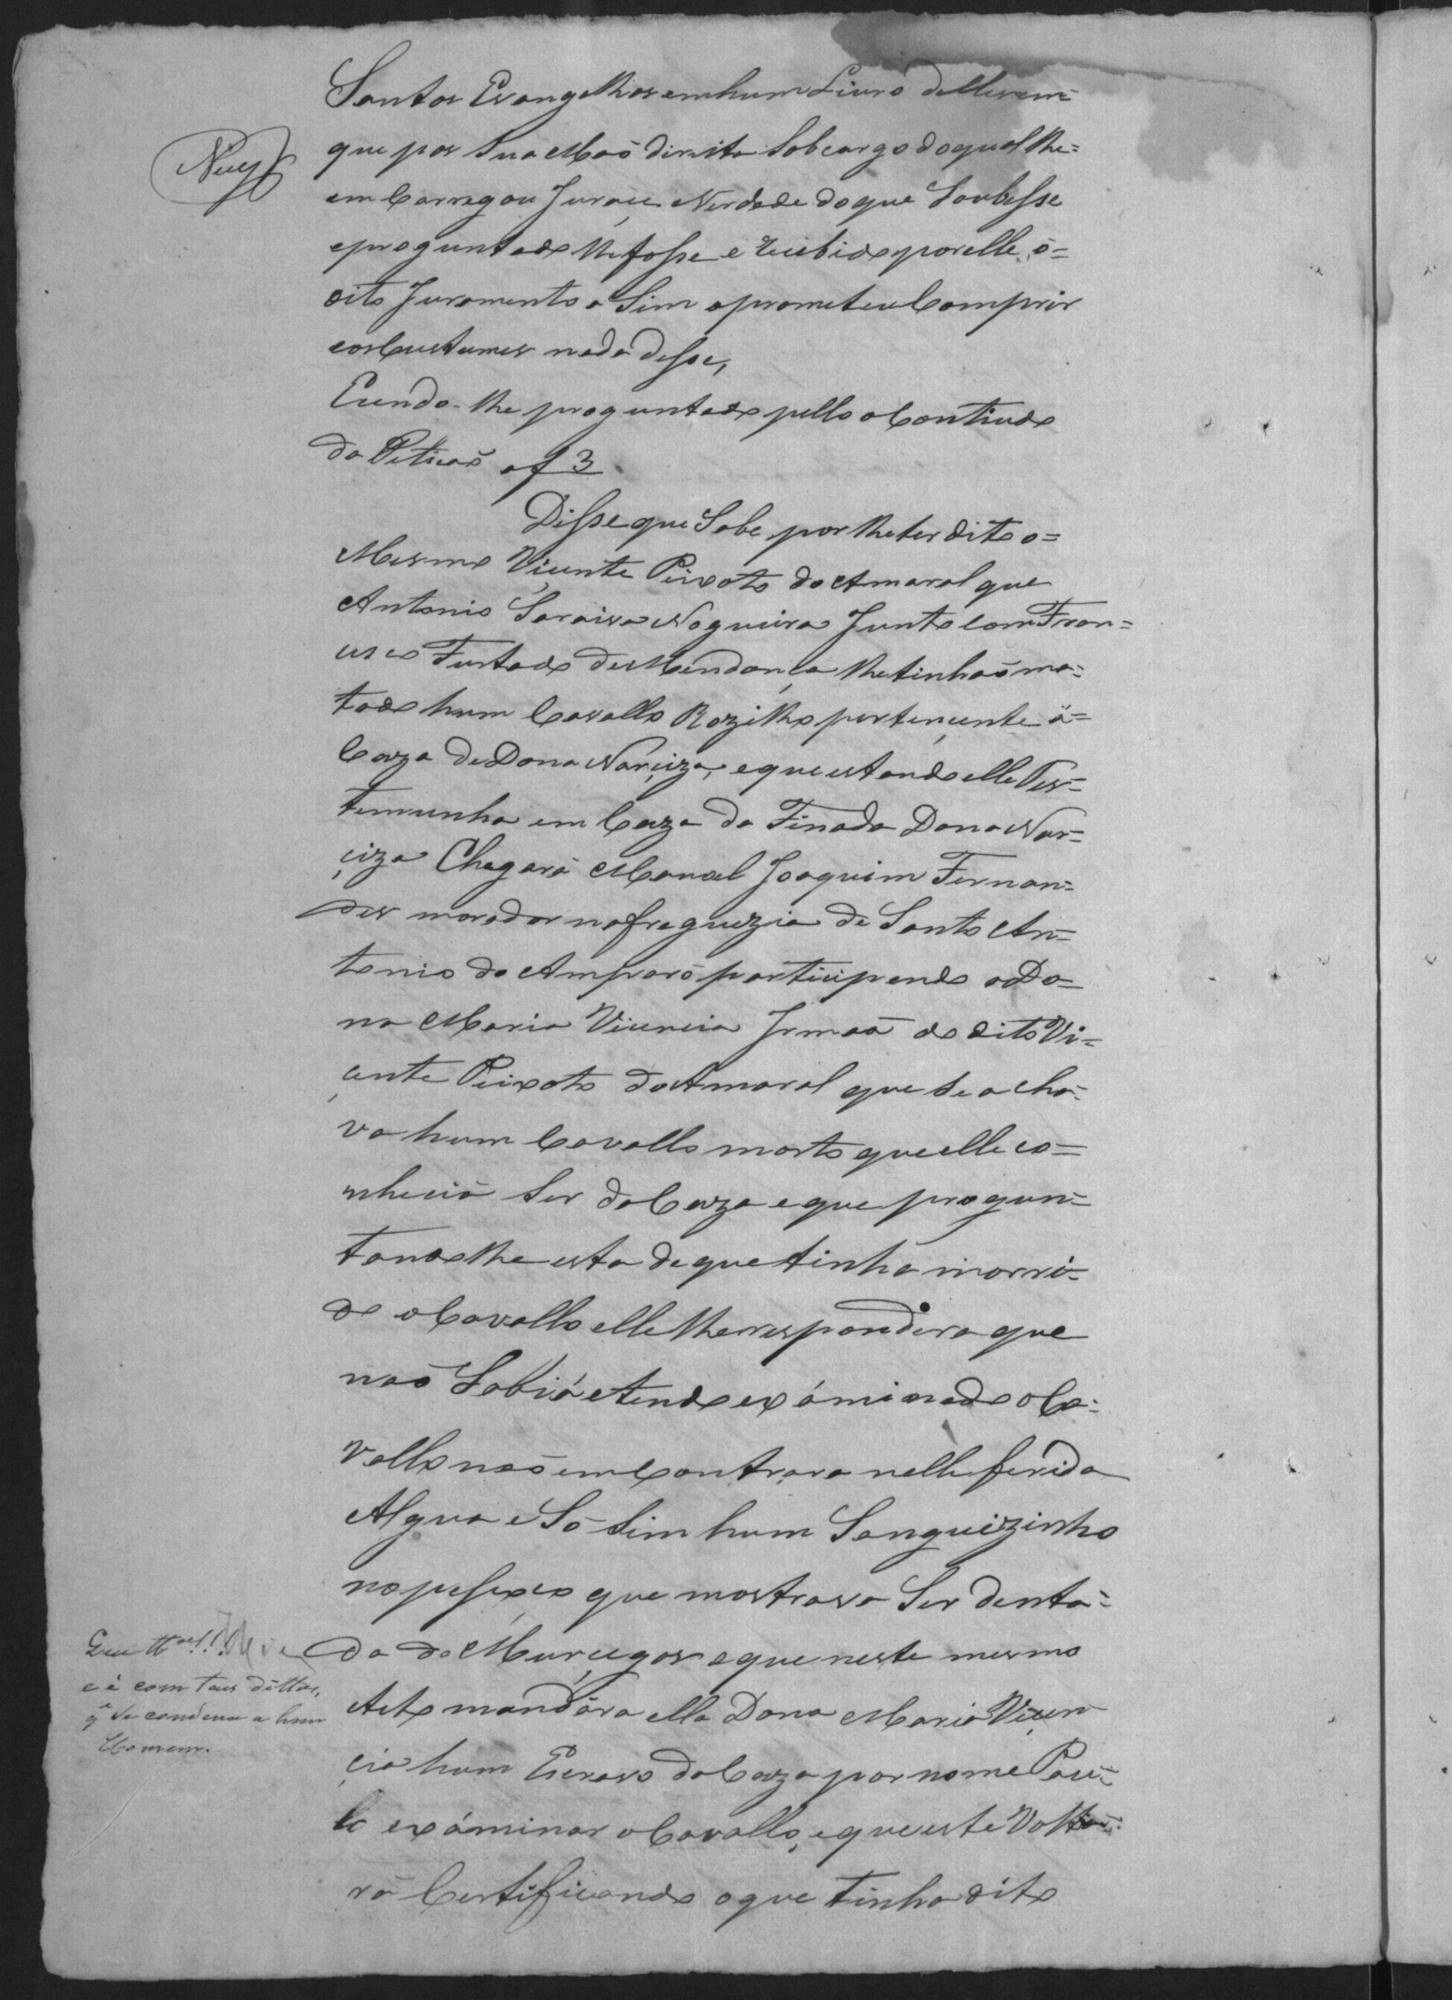 Santos Evangelhos em hum Livro delles em
que pos Sua Maõ direita Sob cargo do qual lhe=
em Carregou Jurace Verdade do que Soubesse
e preguntado lhe fosse e recibido por elle o=
dito Juramento a Sim o prometeu Comprir
e os Custumes nada desse,
Eendo-lhe preguntado pello o Contiudo
da Peticaõ a f 3
Disse que Sabe por lhe ter dito o=
Mesmo Viçente Peixoto do Amaral que
Antonio Saraiva Nogueira Junto com Fran=
cisco Furtado de Mendonça lhe tinhaõ ma=
tado hum Cavallo Rozilho pertençente a=
Caza de Dona Narçiza, e que estando elle Tes=
temunha em Caza da Finada Dona Nar=
çiza Chegara Manoel Joaquim Fernan=
des morador na freguezia de Santo An=
tonio do Amparo participando a Do=
na Maria Vicencia Irmaã do dito Vi=
çente Peixoto do Amaral que se acha=
va hum Cavallo morto que elle co=
nhecia Ser da Caza e que pregun=
tandolhe esta de que tinha morri=
do o Cavallo elle lhe respondera que
naõ Sabia e tendo exáminado o Ca=
vallo naõ em Contrara nelle ferida
Algua e Só Sim hum Sanguizinho
no pescoço que mostrava Ser denta=
da de Murçegos e que neste mesmo
Acto mandára ella Dona Maria Viçen
çia hum Escravo da Caza por nome Pau=
lo exáminar o Cavallo, e que este Volta=
rá Certeficando o que tinha dito
Que tt.as!!
e é com taes dittos,
q̃ se condena a hum
Homem.